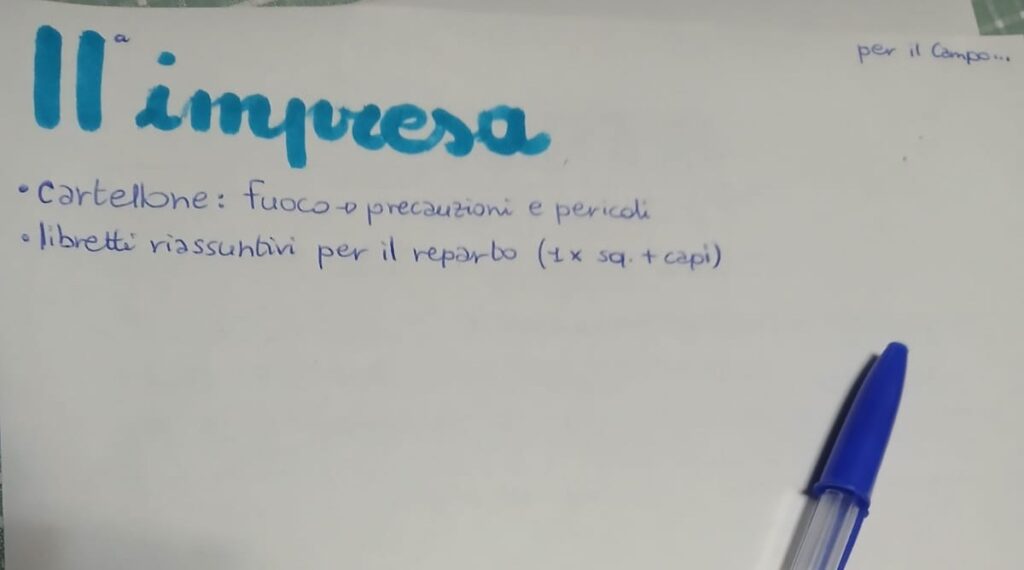 IIª impresa
per il Campo...
• cartellone: fuoco → precauzioni e pericoli
• libretti riassuntivi per il reparto (1x sq. + capi)